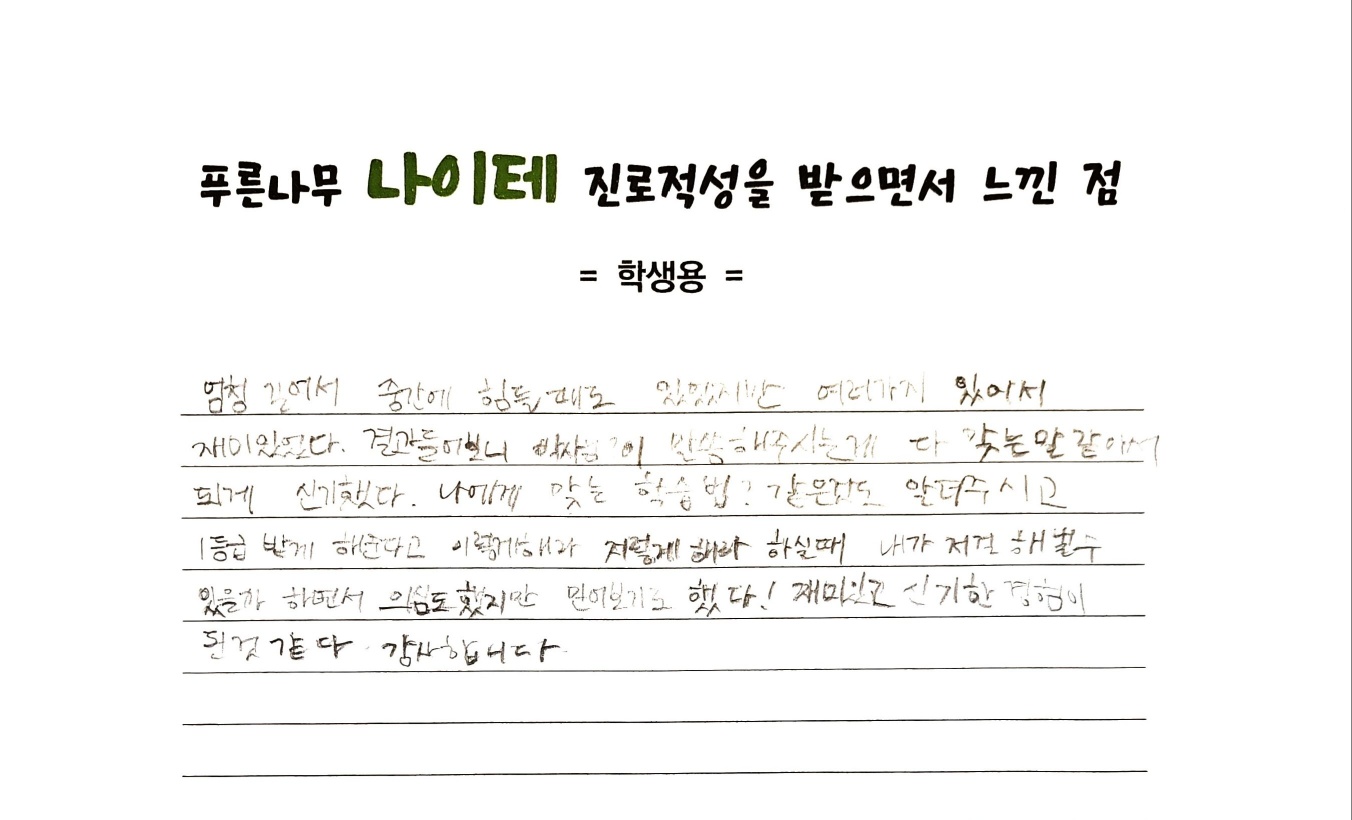 푸른나무 나이테 진로적성을 받으면서 느낀 점
= 학생용 =
엄청 길어서 중간에 힘들때도 있었지만 여러가지 있어서
재미있었다. 결과들어보니 박사님이 말씀해주시는게 다 맞는말 같아서
되게 신기했다. 나에게 맞는 학습법? 같은것도 알려주시고
1등급 받게 해준다고 이렇게해라 저렇게 해라 하실때 내가 저걸 해볼수
있을까 하면서 의심도 했지만 믿어보기로 했다! 재미있고 신기한 경험이
된것 같다. 감사합니다.